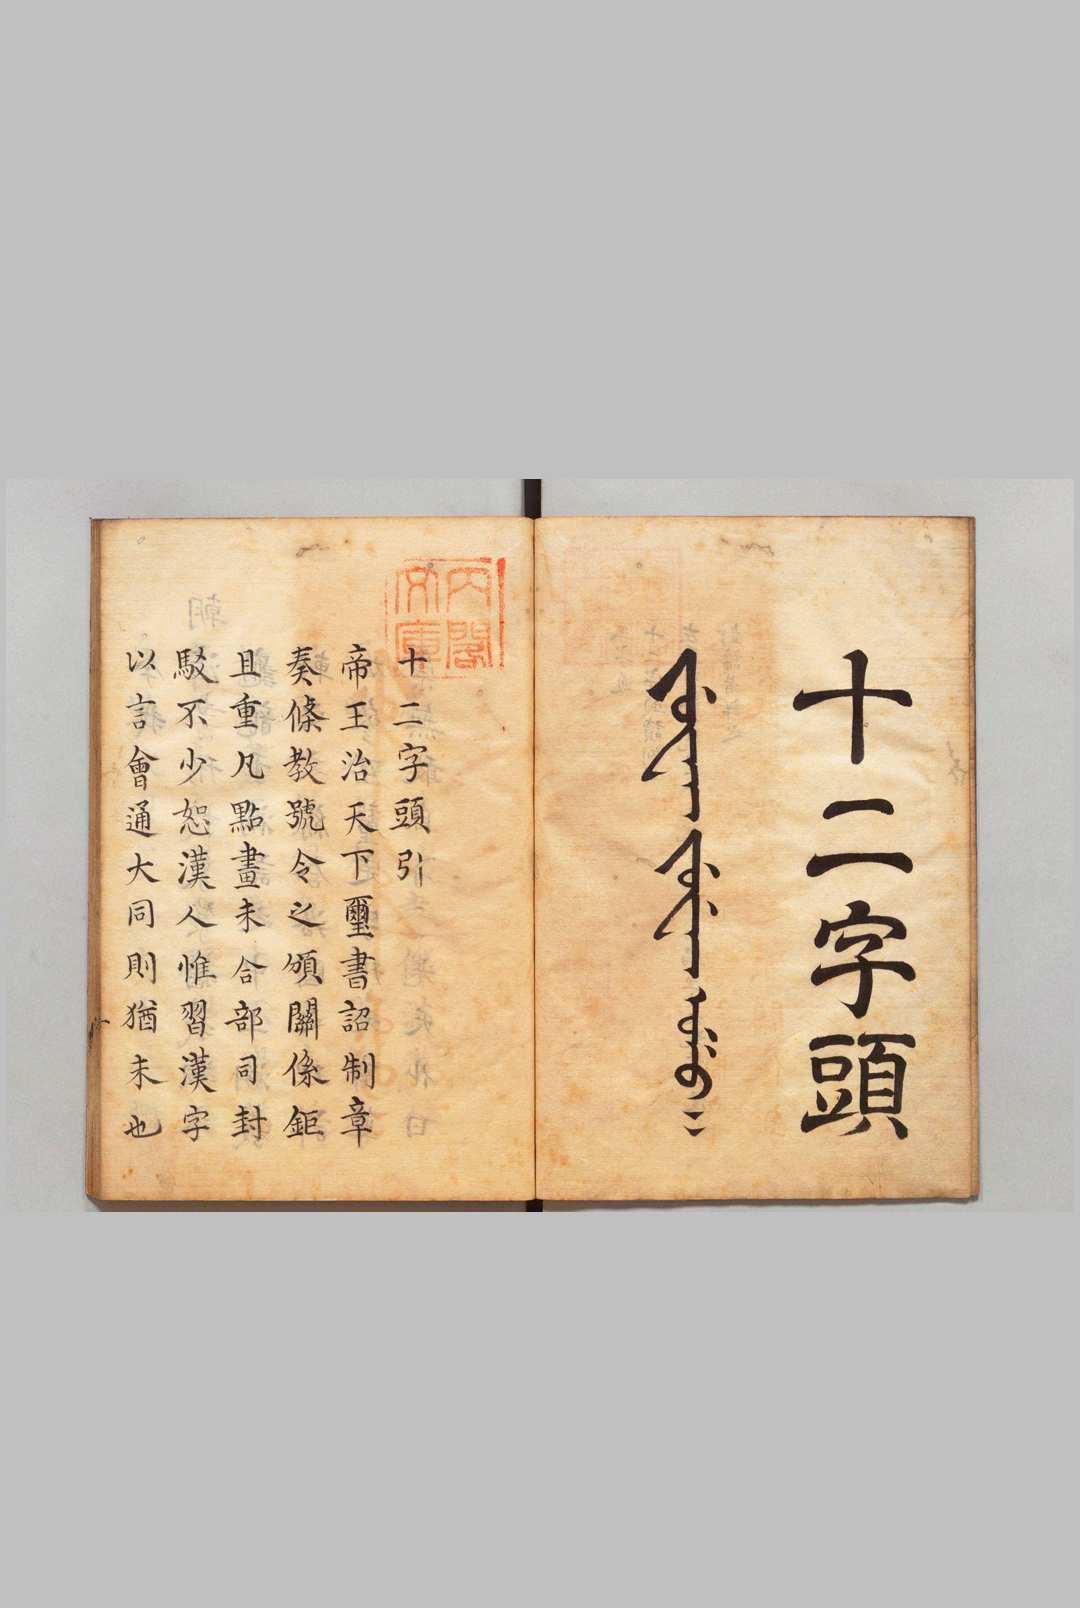 十二字頭
內閣
文庫
十二字頭引
帝王治天下璽書詔制章
奏條教號令之頒關係鉅
且重凡點畫未合部司封
駁不少恕漢人惟習漢字
以言會通大同則猶未也